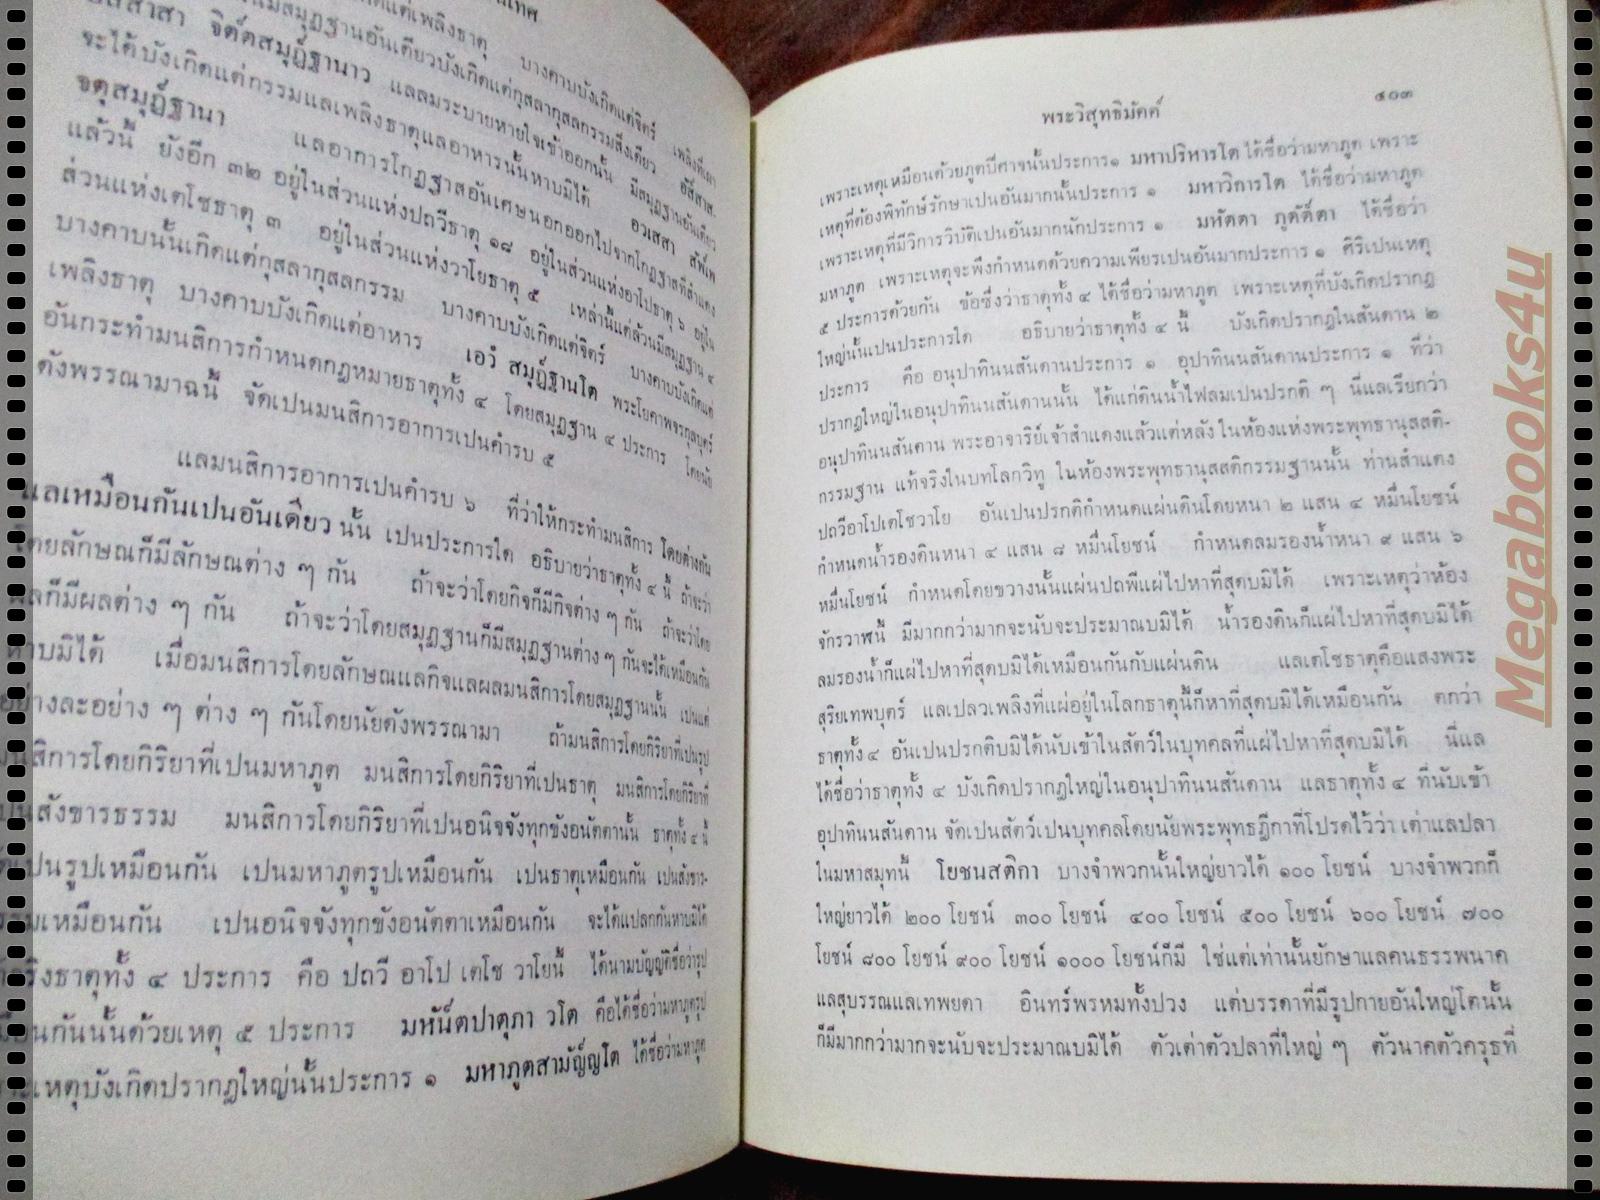 เทศ
เกิดแต่เพลิงธาตุ บางคาบบังเกิดแต่จิตร์ เพลิงที่เผา
มีสมุฏฐานอันเดียวบังเกิดแต่กุสลากุสลกรรมสิ่งเดียว อัสสาส-
จิตต์สมุฏ์ฐานาว แลลมระบายหายใจเข้าออกนั้น มีสมุฏฐานอันเดียว
จะได้บังเกิดแต่กรรมแลเพลิงธาตุแลอาหารนั้นหาบมิได้ อวเสสา สัพ์เพ
จตุสมุฏ์ฐานา แลอาการโกฏฐาสอันเศษนอกออกไปจากโกฏฐาสที่สำแดง
แล้วนี้ ยังอีก ๓๒ อยู่ในส่วนแห่งปถวีธาตุ ๑๘ อยู่ในส่วนแห่งอาโปธาตุ ๖ อยู่ใน
ส่วนแห่งเตโชธาตุ ๓ อยู่ในส่วนแห่งวาโยธาตุ ๕ เหล่านี้แต่ล้วนมีสมุฏฐาน ๔
บางคาบนั้นเกิดแต่กุสลากุสลกรรม บางคาบบังเกิดแต่จิตร์ บางคาบบังเกิดแต่
เพลิงธาตุ บางคาบบังเกิดแต่อาหาร เอวํ สมุฏ์ฐานโต พระโยคาพจรกุลบุตร์
อันกระทำมนสิการกำหนดกฎหมายธาตุทั้ง ๔ โดยสมุฏฐาน ๔ ประการ โดยนัย
ดังพรรณามาฉนี้ จัดเปนมนสิการอาการเปนคำรบ ๕
แลมนสิการอาการเปนคำรบ ๖ ที่ว่าให้กระทำมนสิการ โดยต่างกัน
แลเหมือนกันเปนอันเดียว นั้น เปนประการใด อธิบายว่าธาตุทั้ง ๔ นี้ ถ้าจะว่า
โดยลักษณก็มีลักษณต่าง ๆ กัน ถ้าจะว่าโดยกิจก็มีกิจต่าง ๆ กัน ถ้าจะว่าโดย
ผลก็มีผลต่าง ๆ กัน ถ้าจะว่าโดยสมุฏฐานก็มีสมุฏฐานต่าง ๆ กันจะได้เหมือนกัน
หาบมิได้ เมื่อมนสิการโดยลักษณแลกิจแลผลมนสิการโดยสมุฏฐานนั้น เปนแต่
อย่างละอย่าง ๆ ต่าง ๆ กันโดยนัยดังพรรณามา ถ้ามนสิการโดยกิริยาที่เปนรูป
มนสิการโดยกิริยาที่เปนมหาภูต มนสิการโดยกิริยาที่เปนธาตุ มนสิการโดยกิริยาที่
เปนสังขารธรรม มนสิการโดยกิริยาที่เปนอนิจจังทุกขังอนัตตานั้น ธาตุทั้ง ๔ นี้
เปนรูปเหมือนกัน เปนมหาภูตรูปเหมือนกัน เปนธาตุเหมือนกัน เปนสังขาร-
ธรรมเหมือนกัน เปนอนิจจังทุกขังอนัตตาเหมือนกัน จะได้แปลกกันหาบมิได้
จริงธาตุทั้ง ๔ ประการ คือ ปถวี อาโป เตโช วาโยนี้ ได้นามบัญญัติชื่อว่ารูป
เหมือนกันนั้นด้วยเหตุ ๕ ประการ มหัน์ตปาตุภา วโต คือได้ชื่อว่ามหาภูตรูป
เพราะเหตุบังเกิดปรากฏใหญ่นั้นประการ ๑ มหาภูตสามัญ์ญโต ได้ชื่อว่ามหาภูต
พระวิสุทธิมัคค์ ๔๐๓
เพราะเหตุเหมือนด้วยภูตปีศาจนั้นประการ๑ มหาปริหารโต ได้ชื่อว่ามหาภูต เพราะ
เหตุที่ต้องพิทักษ์รักษาเปนอันมากนั้นประการ ๑ มหาวิการโต ได้ชื่อว่ามหาภูต
เพราะเหตุที่มีวิการวิบัติเปนอันมากนักประการ ๑ มหัตตา ภูตัต์ตา ได้ชื่อว่า
มหาภูต เพราะเหตุจะพึงกำหนดด้วยความเพียรเปนอันมากประการ ๑ ศิริเปนเหตุ
๕ ประการด้วยกัน ข้อซึ่งว่าธาตุทั้ง ๔ ได้ชื่อว่ามหาภูต เพราะเหตุที่บังเกิดปรากฏ
ใหญ่นั้นเปนประการใด อธิบายว่าธาตุทั้ง ๔ นี้ บังเกิดปรากฏในสันดาน ๒
ประการ คือ อนุปาทินนสันดานประการ ๑ อุปาทินนสันดานประการ ๑ ที่ว่า
ปรากฏใหญ่ในอนุปาทินนสันดานนั้น ได้แก่ดินน้ำไฟลมเปนปรกติ ๆ นี่แลเรียกว่า
อนุปาทินนสันดาน พระอาจาริย์เจ้าสำแดงแล้วแต่หลัง ในห้องแห่งพระพุทธานุสสติ-
กรรมฐาน แท้จริงในบทโลกวิทู ในห้องพระพุทธานุสสติกรรมฐานนั้น ท่านสำแดง
ปถวีอาโปเตโชวาโย อันเปนปรกติกำหนดแผ่นดินโดยหนา ๒ แสน ๔ หมื่นโยชน์
กำหนดน้ำรองดินหนา ๔ แสน ๘ หมื่นโยชน์ กำหนดลมรองน้ำหนา ๙ แสน ๖
หมื่นโยชน์ กำหนดโดยขวางนั้นแผ่นปถพีแผ่ไปหาที่สุดบมิได้ เพราะเหตุว่าห้อง
จักรวาฬนี้ มีมากกว่ามากจะนับจะประมาณบมิได้ น้ำรองดินก็แผ่ไปหาที่สุดบมิได้
ลมรองน้ำก็แผ่ไปหาที่สุดบมิได้เหมือนกันกับแผ่นดิน แลเตโชธาตุคือแสงพระ
สุริยเทพบุตร์ แลเปลวเพลิงที่แผ่อยู่ในโลกธาตุนี้ก็หาที่สุดบมิได้เหมือนกัน ตกว่า
ธาตุทั้ง ๔ อันเปนปรกติบมิได้นับเข้าในสัตว์ในบุทคลที่แผ่ไปหาที่สุดบมิได้ นี่แล
ได้ชื่อว่าธาตุทั้ง ๔ บังเกิดปรากฏใหญ่ในอนุปาทินนสันดาน แลธาตุทั้ง ๔ ที่นับเข้า
อุปาทินนสันดาน จัดเปนสัตว์เปนบุทคลโดยนัยพระพุทธฎีกาที่โปรดไว้ว่า เต่าแลปลา
ในมหาสมุทนี้ โยชนสติกา บางจำพวกนั้นใหญ่ยาวได้ ๑๐๐ โยชน์ บางจำพวกก็
ใหญ่ยาวได้ ๒๐๐ โยชน์ ๓๐๐ โยชน์ ๔๐๐ โยชน์ ๕๐๐ โยชน์ ๖๐๐ โยชน์ ๗๐๐
โยชน์ ๘๐๐ โยชน์ ๙๐๐ โยชน์ ๑๐๐๐ โยชน์ก็มี ใช่แต่เท่านั้นยักษาแลคนธรรพนาค
แลสุบรรณแลเทพยดา อินทร์พรหมทั้งปวง แต่บรรดาที่มีรูปกายอันใหญ่โตนั้น
ก็มีมากกว่ามากจะนับจะประมาณบมิได้ ตัวเต่าตัวปลาที่ใหญ่ ๆ ตัวนาคตัวครุธที่
Megabooks4u